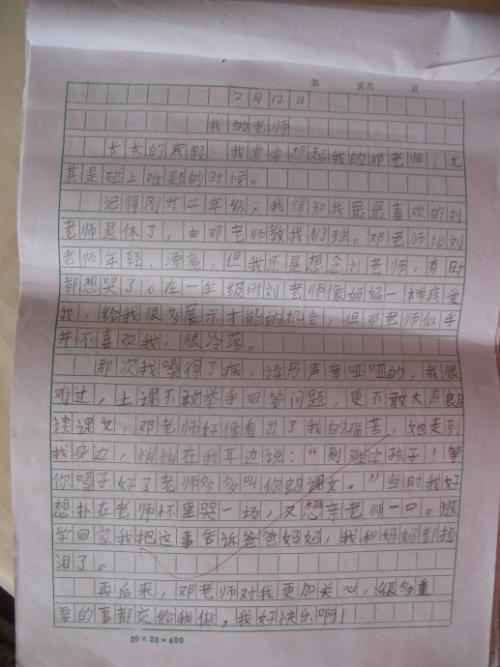 第 页共 页
2月12日
我的老师
长长的寒假,我常常想起我的邓老师,尤
其是碰上难题的时候。
记得刚升二年级,我得知我最最喜欢的刘
老师退休了,由邓老师教我们班。邓老师比刘
老师年轻、漂亮,但我还是想念刘老师,有时
都想哭了。在一年级时刘老师像妈妈一样疼爱
我,给我很多展示才能的机会,但邓老师似乎
并不喜欢我,很冷落。
那次我嗓得了病,读书声音哑哑的,我很
难过,上课不敢举手回答问题,更不敢大声朗
读课文,邓老师好像看出了我的痛苦,她走到
我身边,悄悄在我耳边说:“别难过孩子!等
你嗓子好了老师多多叫你朗课文。”当时我好
想扑在老师怀里哭一场,又想亲老师一口。放
学回家我把这事告诉爸爸妈妈,我和妈妈都掉
泪了。
再后来,邓老师对我更加关心,很多重
要的事都交给我做,我好快乐啊!
20×20=400